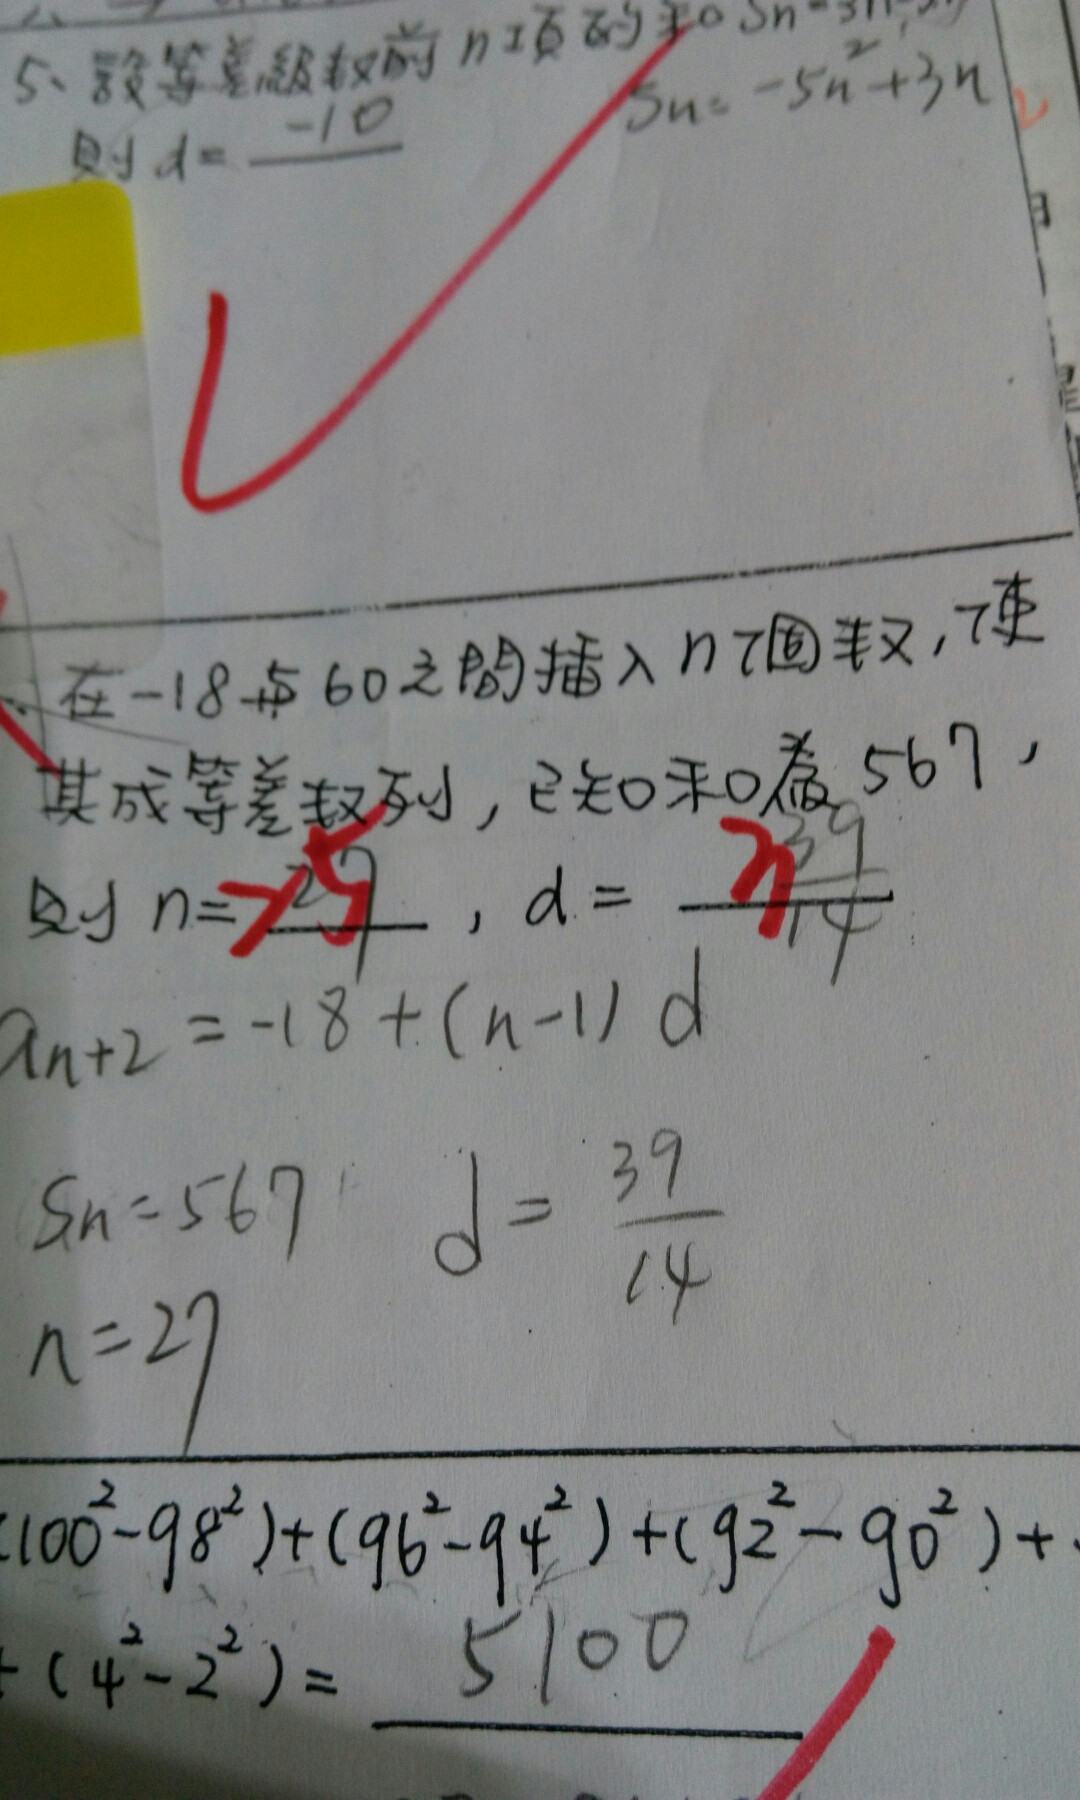 5、設等差級數前n項的和Sn=3n-5n²,
Sn=-5n²+3n
則d=-10
在-18與60之間插入n個數,使
其成等差數列,已知和為567,
則n=27, d=39/14
25
3
an+2=-18+(n-1)d
Sn=567 d=39/14
n=27
(100²-98²)+(96²-94²)+(92²-90²)+
+(4²-2²)=5100